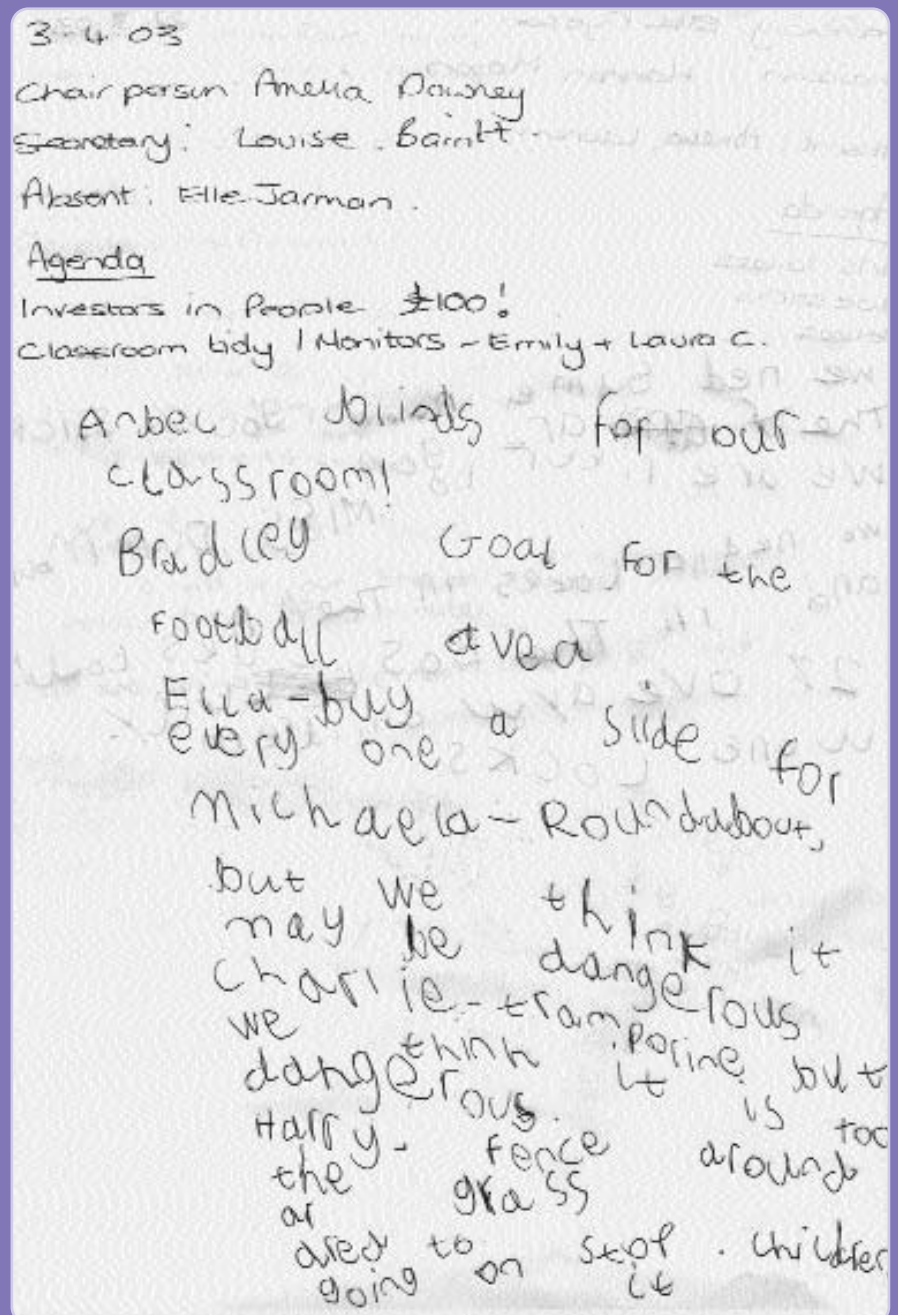 3-4-03
Chairperson Amelia Downey
Secretary: Louise Barritt
Absent: Elle Jarman.
Agenda
Investors in People £100!
Classroom tidy / Monitors - Emily + Laura C.
blinds for our
classroom!
Bradley Goal for the
football avea
Ella - buy a slide for
every one
Michaela - Roundabout,
but we think it
may be dangerous
Charlie - trampoline but
we thinh it is too
dangerous.
Harry - fence around
the grass
ar
area to stop children
going on it